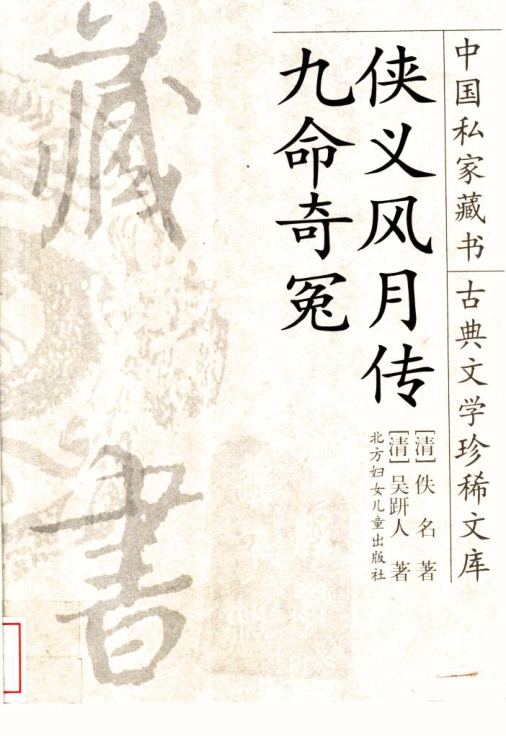 中国私家藏书
古典文学珍稀文库
侠义风月传
九命奇冤
［清］佚名 著
［清］吴趼人 著
北方妇女儿童出版社
藏书